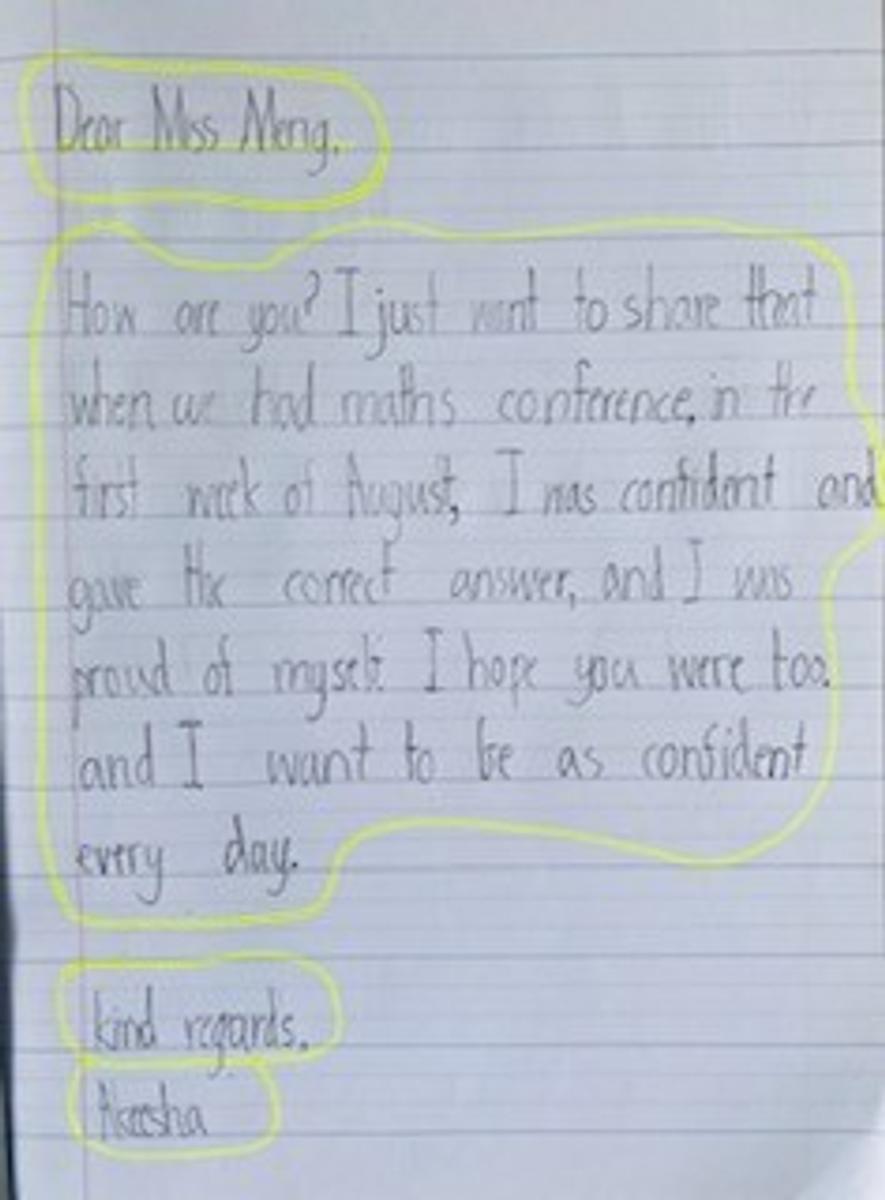 Dear Miss Meng,
How are you? I just want to share that
when we had maths conference, in the
first week of August, I was confident and
gave the correct answer, and I was
proud of myself. I hope you were too.
and I want to be as confident
every day.
kind regards,